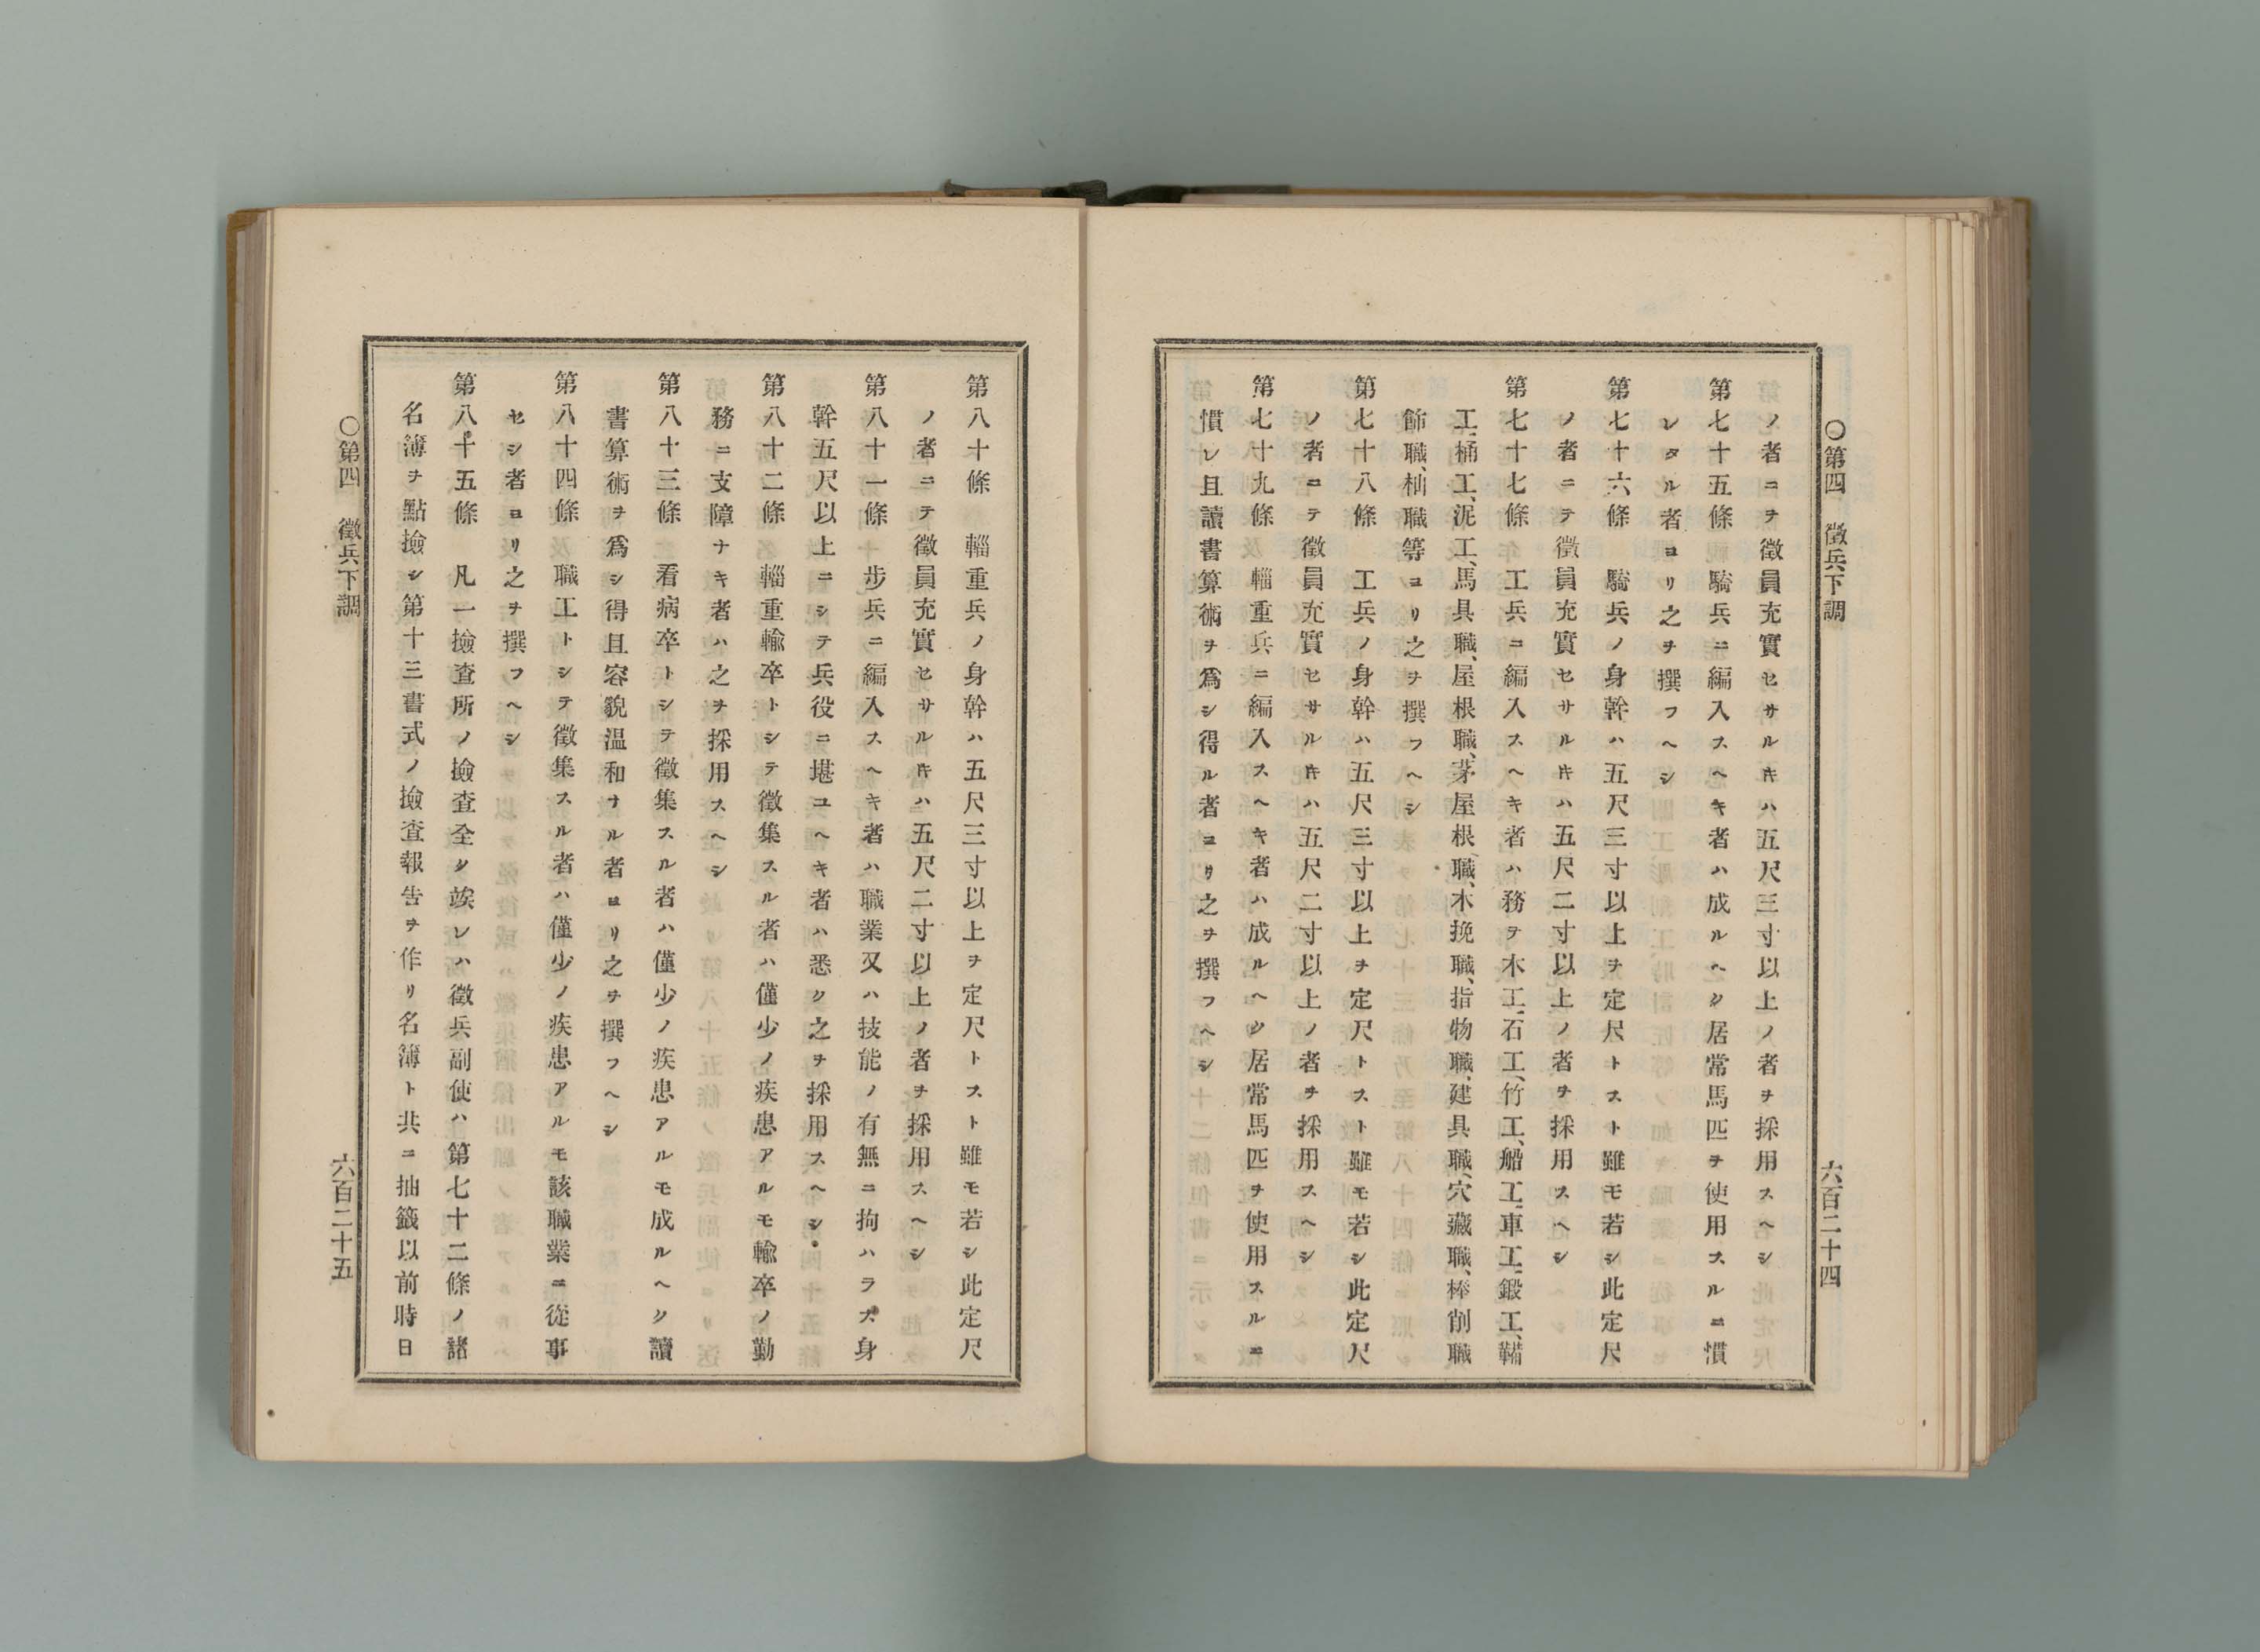 〇第四 徵兵下調
六百二十四
ノ者ニテ徵員充實セサルキハ五尺三寸以上ノ者ヲ採用スヘシ
第七十五條 騎兵ニ編入スヘキ者ハ成ルヘク居常馬匹ヲ使用スルニ慣
レタル者ヨリ之ヲ撰フヘシ
第七十六條 騎兵ノ身幹ハ五尺三寸以上ヲ定尺トスト雖モ若シ此定尺
ノ者ニテ徵員充實セサルキハ五尺二寸以上ノ者ヲ採用スヘシ
第七十七條 工兵ニ編入スヘキ者ハ務テ木工、石工、竹工、船工、車工、鍛工、鞴
工、桶工、泥工、馬具職、屋根職、茅屋根職、木挽職、指物職、建具職、穴藏職、棒削職
飾職、杣職等ヨリ之ヲ撰フヘシ
第七十八條 工兵ノ身幹ハ五尺三寸以上ヲ定尺トスト雖モ若シ此定尺
ノ者ニテ徵員充實セサルキハ五尺二寸以上ノ者ヲ採用スヘシ
第七十九條 輜重兵ニ編入スヘキ者ハ成ルヘク居常馬匹ヲ使用スルニ
慣レ且讀書算術ヲ爲シ得ル者ヨリ之ヲ撰フヘシ
第八十條 輜重兵ノ身幹ハ五尺三寸以上ヲ定尺トスト雖モ若シ此定尺
ノ者ニテ徵員充實セサルキハ五尺二寸以上ノ者ヲ採用スヘシ
第八十一條 步兵ニ編入スヘキ者ハ職業又ハ技能ノ有無ニ拘ハラス身
幹五尺以上ニシテ兵役ニ堪ユヘキ者ハ悉ク之ヲ採用スヘシ
第八十二條 輜重輸卒トシテ徵集スル者ハ僅少ノ疾患アルモ輸卒ノ勤
務ニ支障ナキ者ハ之ヲ採用スヘシ
第八十三條 看病卒トシテ徵集スル者ハ僅少ノ疾患アルモ成ルヘク讀
書算術ヲ爲シ得且容貌温和ナル者ヨリ之ヲ撰フヘシ
第八十四條 職工トシテ徵集スル者ハ僅少ノ疾患アルモ該職業ニ從事
セシ者ヨリ之ヲ撰フヘシ
第八十五條 凡一撿査所ノ撿査全ク竢レハ徵兵副使ハ第七十二條ノ諸
名簿ヲ點撿シ第十三書式ノ撿査報告ヲ作リ名簿ト共ニ抽籤以前時日
〇第四 徵兵下調
六百二十五